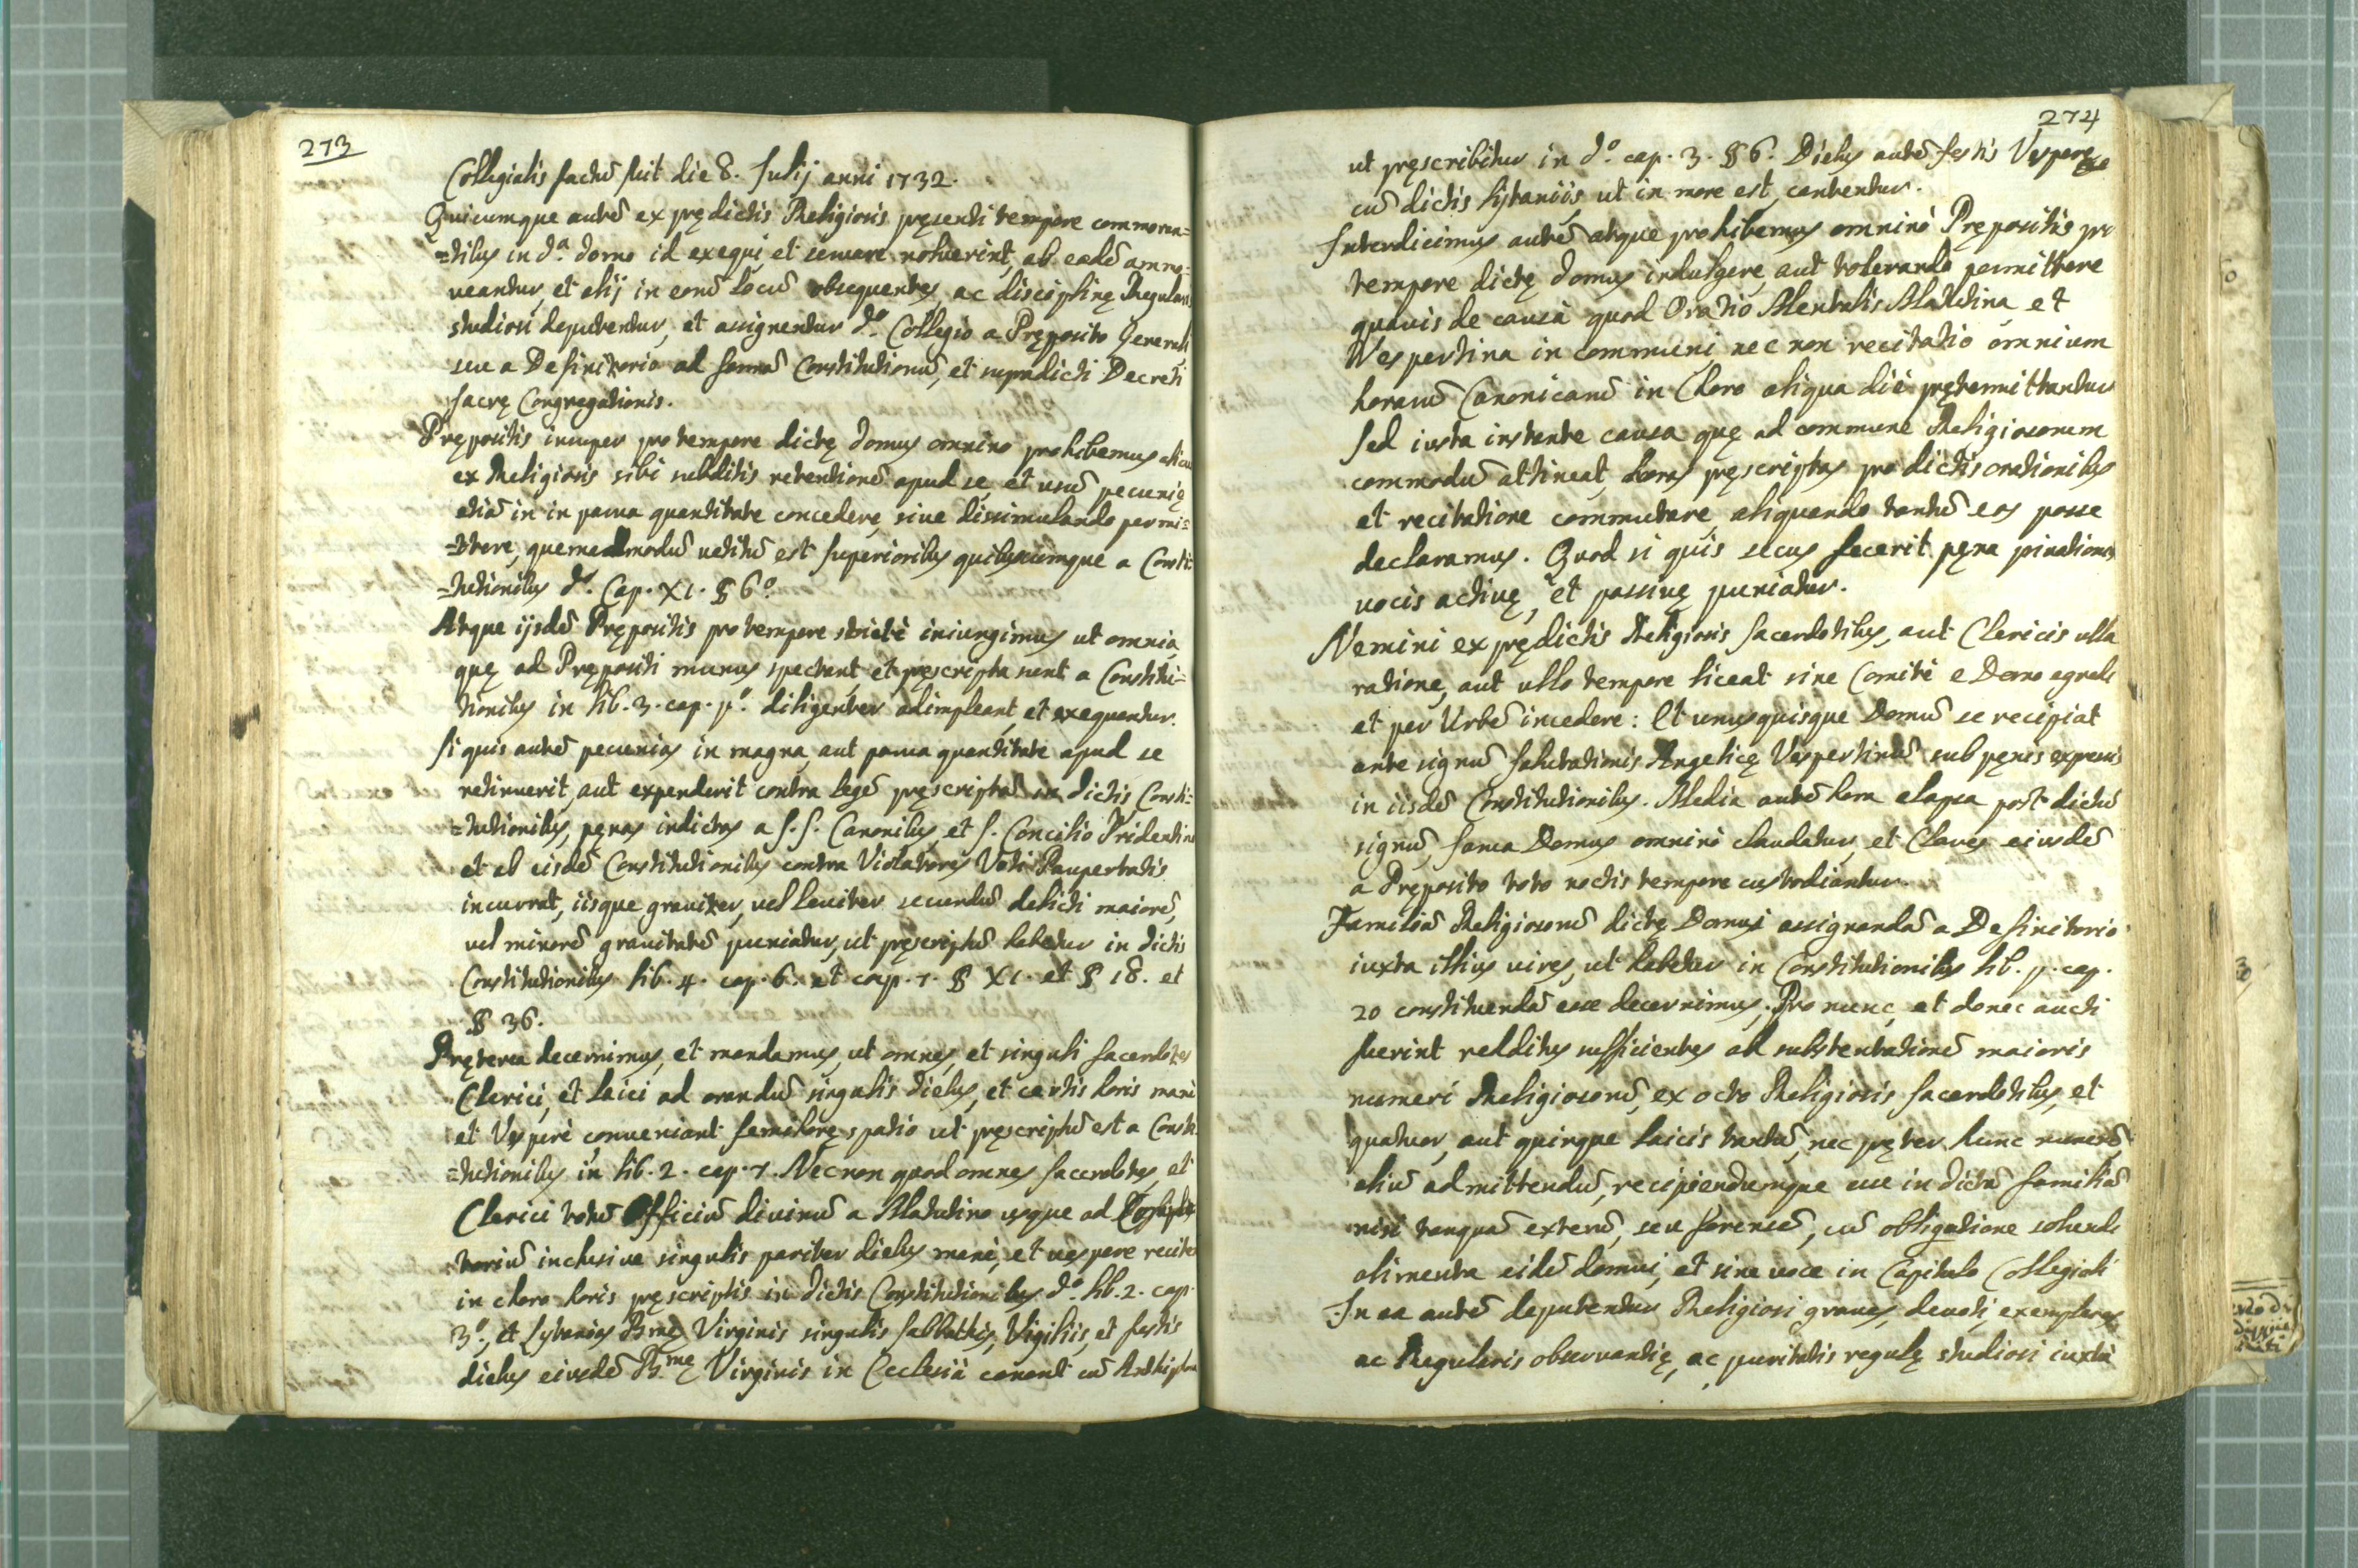 273
Collegialis factũ fuit die 8. Julij anni 1732.
Quicumque autẽ ex prędictis Religiosis pręsenti tempore commoran=
=tibus in dª. domo id exequi et seruare noluerint, ab eadẽ ammo=
ueantur, et alij in eorũ locũ obsequentes, ac disciplinę Regularis
studiosi deputentur, et assignentur dº. Collegio a Pręposito Generali
seu a Definitorio ad formã Constitutionũ, et supradicti Decreti
Sacrę Congregationis.
Prępositis insuper pro tempore dictę domus omnino prohibemus alicui
ex Religiosis sibi subditis retentionẽ apud se, et usũ pecunię
etiã in in parua quantitate concedere, siue dissimulando permi=
=ttere, quemadmodũ uetitũ est Superioribus quibuscumque a Consti=
=tutionibus dº. Cap. XI. § 6º.
Atque ijsdẽ Prępositis pro tempore strictè iniungimus ut omnia
quę ad Prępositi munus spectant et pręscripta sunt a Constitu=
tionibus in lib. 3. cap. pº. diligenter adimpleant, et exequantur.
Si quis autẽ pecunias in magna, aut parua quantitate apud se
retinuerit, aut expenderit contra legẽ pręscriptã in dictis Consti=
=tutionibus, pęnas indictas a S. S. Canonibus, et S. Concilio Tridentino
et ab eisdẽ Constitutionibus contra Violatores Voti Paupertatis
incurrat, iisque grauiter, uel leuiter secundũ delicti maiorẽ,
uel minorẽ grauitatẽ puniatur, ut pręscriptũ habetur in dictis
Constitutionibus lib. 4. cap. 6. et cap. 7. § XI. et § 18. et
§ 36.
Pręterea decernimus, et mandamus, ut omnes, et singuli Sacerdotes
Clerici, et Laici ad orandũ singulis diebus, et certis horis manè
et Vesperè conueniant semihorę spatio ut pręscriptũ est a Consti=
=tutionibus in lib. 2. cap. 7. Necnon quod omnes Sacerdotes, et
Clerici totũ Officiũ diuinũ a Matutino usque ad Comple
toriũ inclusiue singulis pariter diebus manè, et uespere recitent
in choro horis pręscriptis in dictis Constitutionibus dº. lib. 2. cap.
3º., et Lytanias Bmę Virginis singulis Sabbathis, Vigiliis, et festis
diebus eiusdẽ B.mę Virginis in Ecclesiâ canant cũ Antiphona
274
ut pręscribitur in dº. cap. 3. § 6. Diebus autẽ festis Vesperę
cũ dictis Lytaniis, ut in more est, cantentur.
Interdicimus autẽ atque prohibemus omninò Prępositis pro
tempore dictę domus indulgere, aut tolerando permittere
quauis de causâ quod Oratio Mentalis Matutina et
Vespertina in communi necnon recitatio omnium
horarũ Canonicarũ in Choro aliqua die pętermittantur
Sed iusta instante causa quę ad commune Religiosorum
commodũ attineat, horas pręscriptas pro dictis orationibus
et recitatione commutare aliquando tantũ eos posse
declaramus. Quod si quis secus fecerit pęna priuationis
uocis actiuę, et passiuę puniatur.
Nemini ex prędictis Religiosis Sacerdotibus, aut Clericis ulla
ratione, aut ullo tempore liceat sine Comite e Domo egredi
et per Urbẽ incedere: Et unusquisque Domũ se recipiat
ante signũ Salutationis Angelicę Vespertinũ sub pęnis expressis
in iisdẽ Constitutionibus. Media autẽ hora elapsa post dictũ
signũ, Ianua Domus omninò claudatur, et Claues eiusdẽ
a Pręposito toto noctis tempore custodiantur.
Familiã Religiosorũ dictę Domui assignandã a Definitorio
iuxta illius uires, ut habetur in Constitutionibus lib. p. cap.
20 constituendã esse decernimus. Pro nunc, et donec aucti
fuerint redditus sufficientes ad substentationẽ maioris
numeri Religiosorũ, ex octo Religiosis Sacerdotibus, et
quatuor, aut quinque Laicis tantũ, nec pręter hunc numerũ
aliũ admittendũ, recipiendumque esse in dictã familiã
nisi tanquã exterũ, seu forensẽ, cũ obligatione soluendi
alimenta eidẽ domui, et sine uoce in Capitulo Collegiali
In ea autẽ deputentur Religiosi graues, deuoti, exemplares
ac Regularis obseruantię, ac puritatis regulę studiosi iuxtà